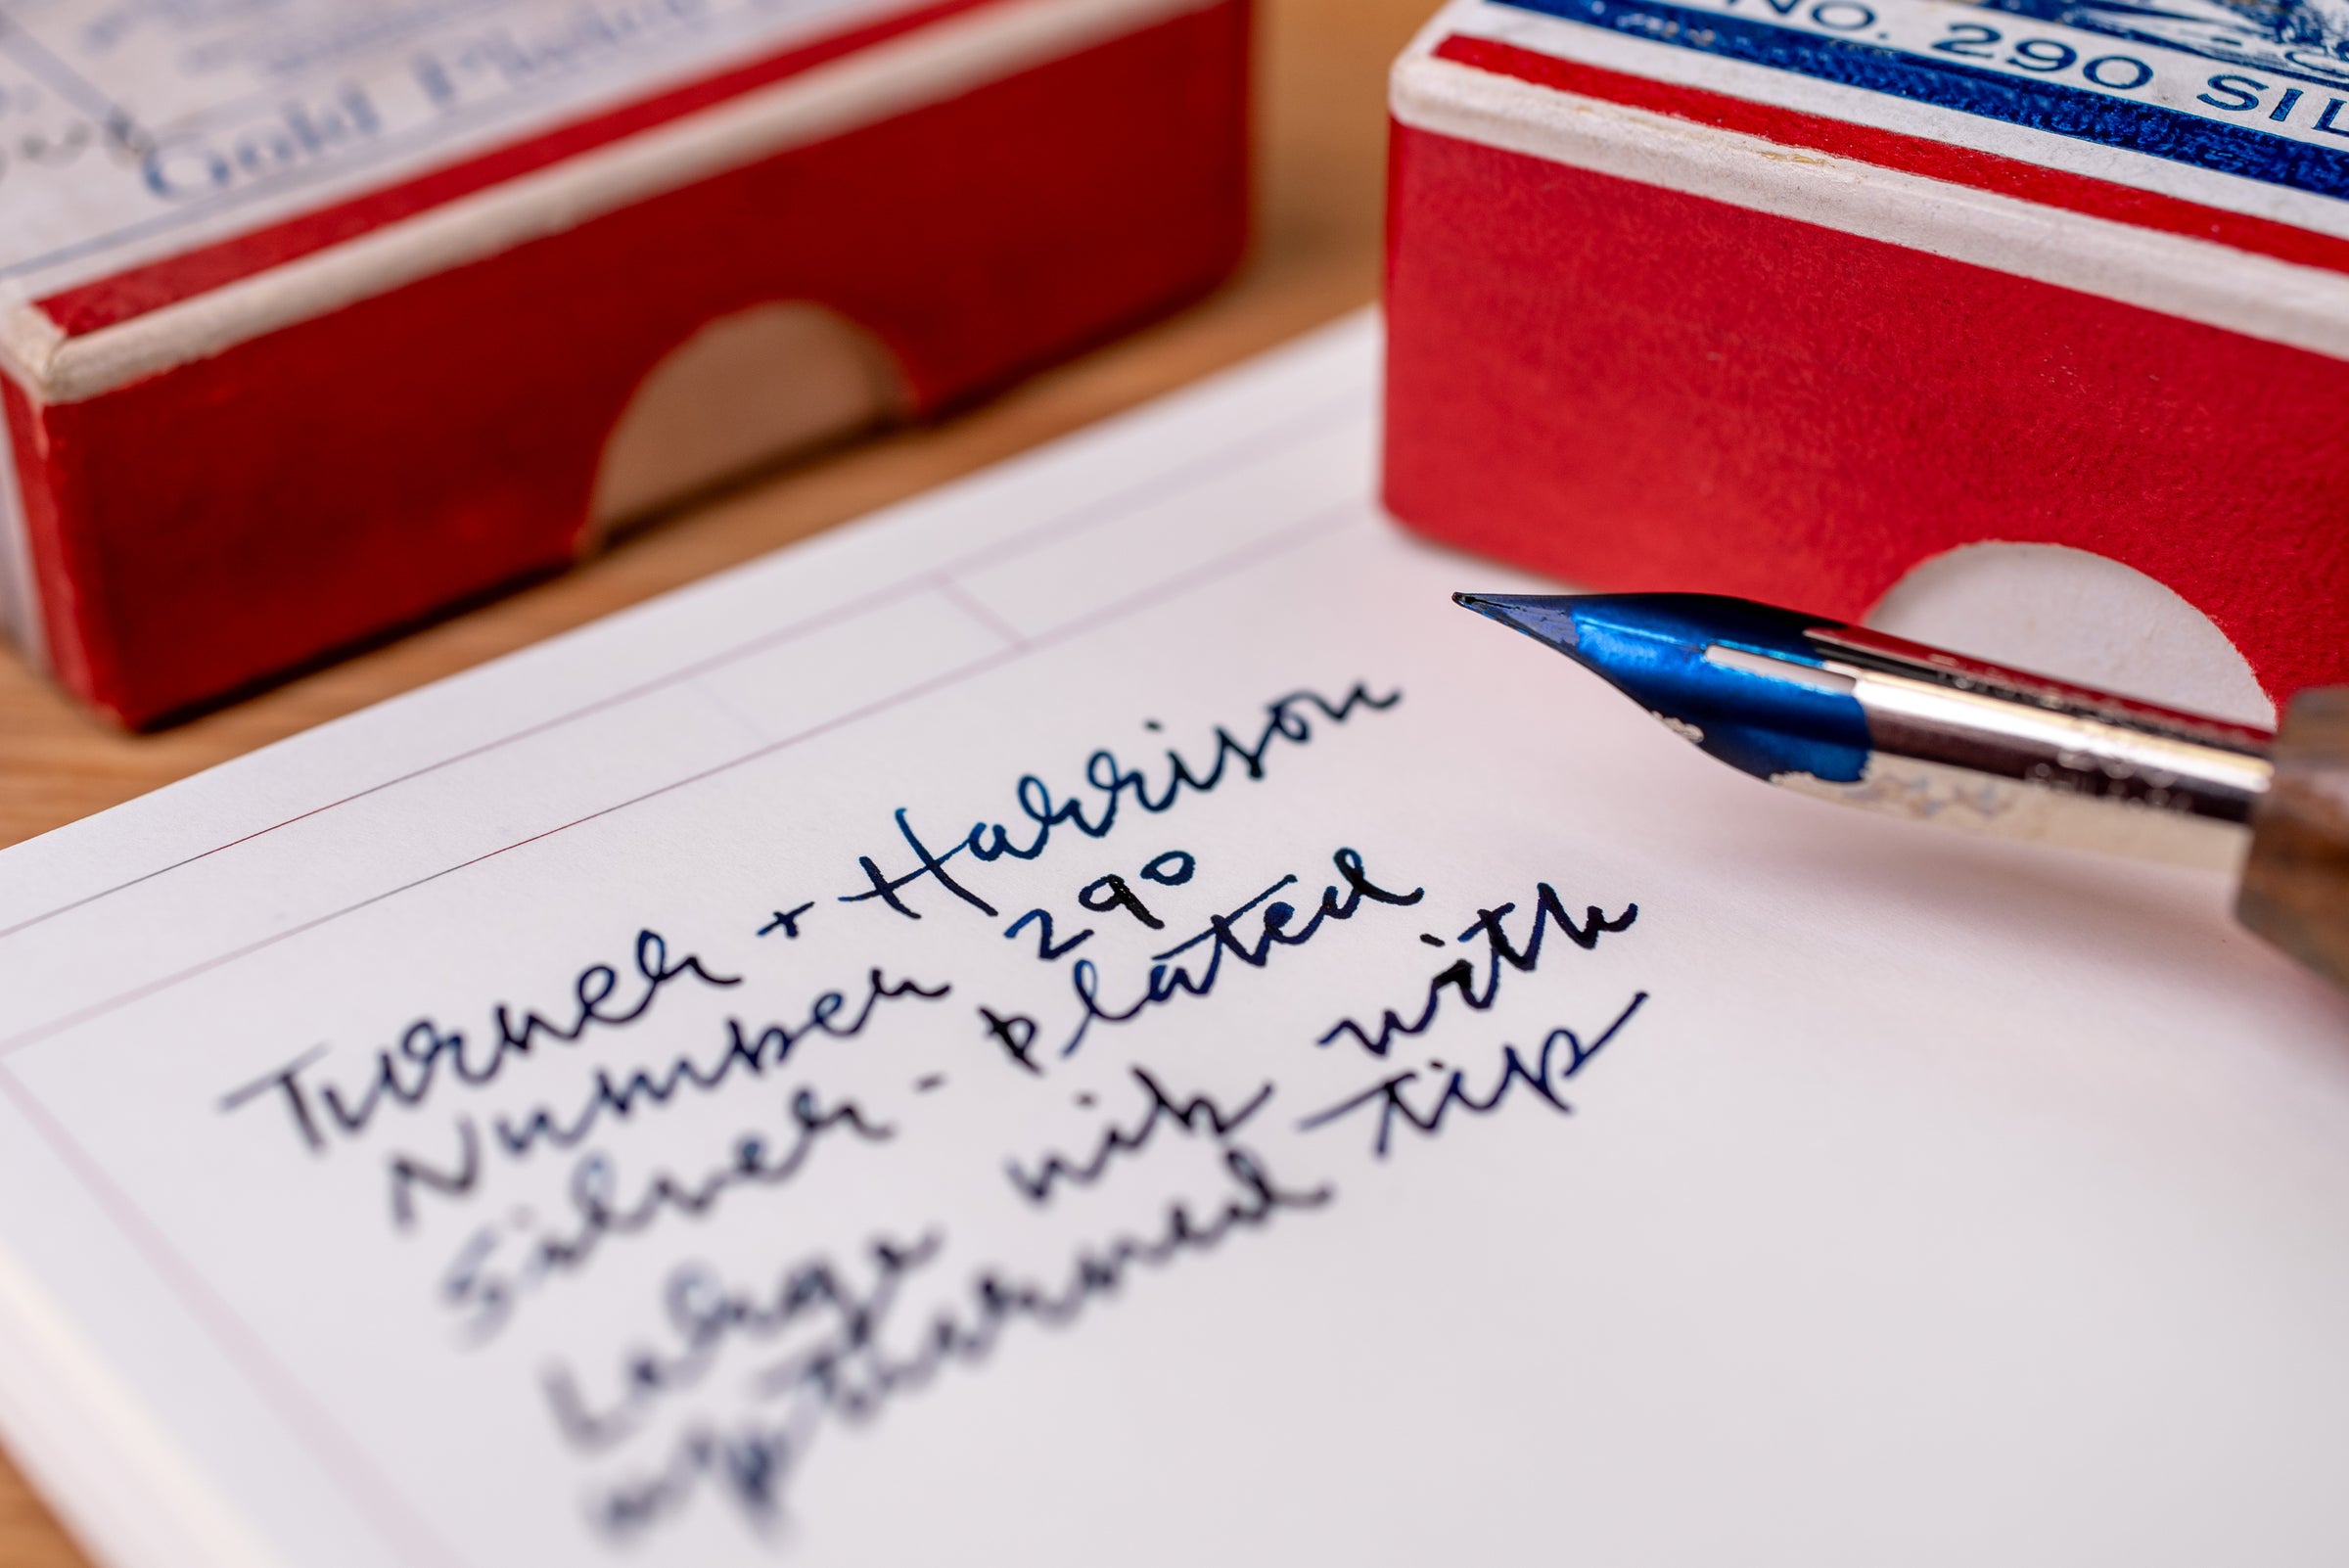 Gold
NO. 290 SIL
Turner + Harrison
Number 290
Silver - plated
Large nib with
upturned tip